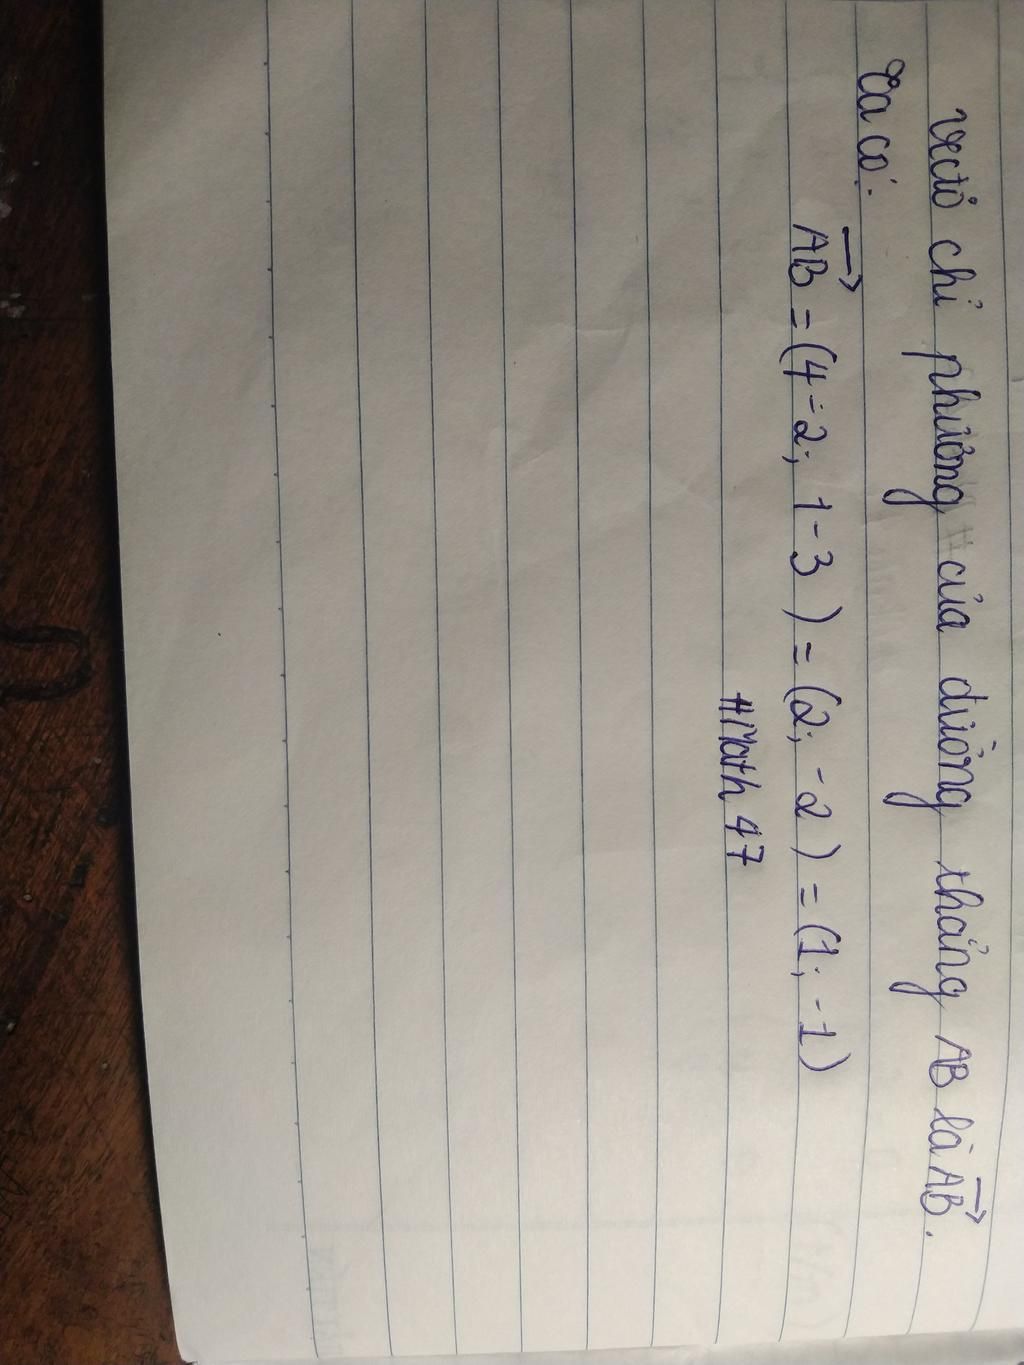 Vectơ chỉ phương của đường thẳng AB là \overrightarrow{AB}.
Ta có:
\overrightarrow{AB} = (4-2; 1-3) = (2; -2) = (1; -1)
#Math 47